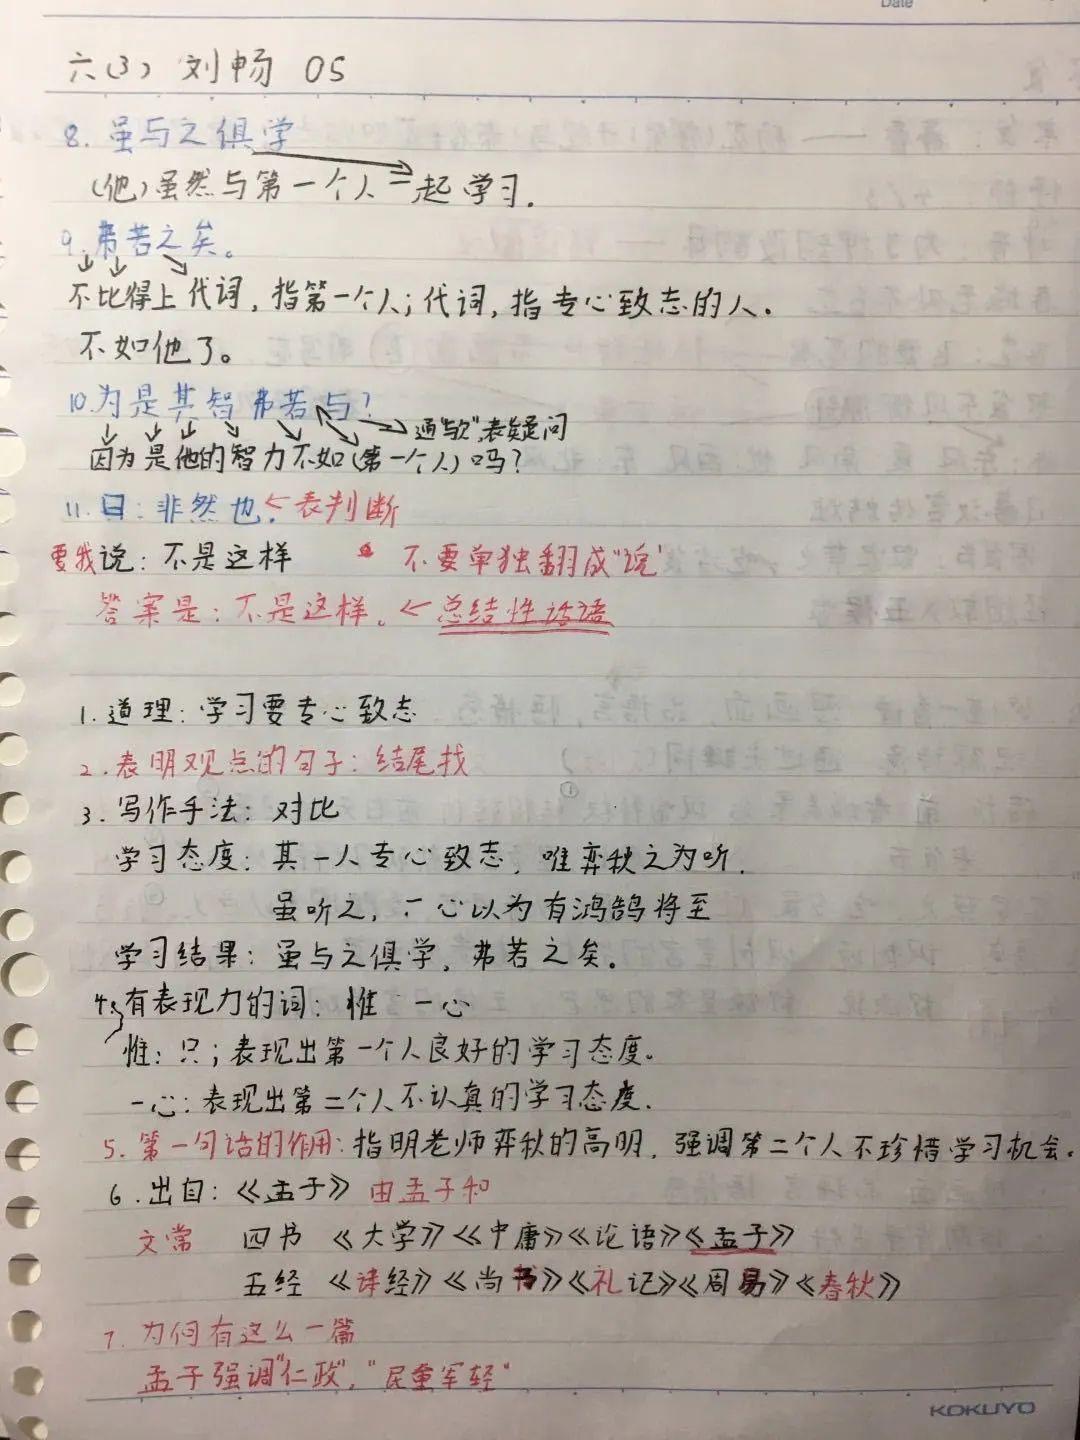 Date
六(3) 刘畅 05
8. 虽与之俱学
(他)虽然与第一个人一起学习.
9. 弗若之矣。
不比得上代词,指第一个人;代词,指专心致志的人.
不如他了。
10.为是其智弗若与?
通"欤",表疑问
因为是他的智力不如(第一个人)吗?
11. 曰:非然也.←表判断
要我说:不是这样 不要单独翻成"说'
答案是:不是这样。←总结性话语
1.道理:学习要专心致志
2.表明观点的句子:结尾找
3.写作手法:对比
学习态度:其一人专心致志,唯弈秋之为听.
虽听之,一心以为有鸿鹄将至
学习结果:虽与之俱学,弗若之矣.
4.有表现力的词:惟 一心
惟:只;表现出第一个人良好的学习态度。
一心:表现出第二个人不认真的学习态度.
5.第一句话的作用:指明老师弈秋的高明,强调第二个人不珍惜学习机会。
6.出自:《孟子》由孟子和
文常 四书 《大学》《中庸》《论语》《孟子》
五经 《诗经》《尚书》《礼记》《周易》《春秋》
7.为何有这么一篇
孟子强调"仁政","民重军轻"
KOKUYO